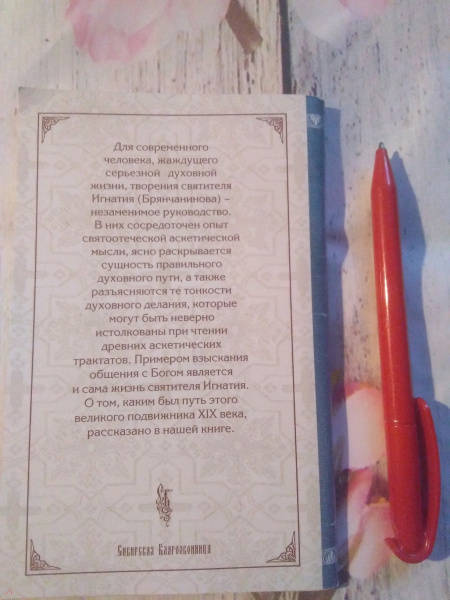 Для современного
человека, жаждущего
серьезной духовной
жизни, творения святителя
Игнатия (Брянчанинова) –
незаменимое руководство.
В них сосредоточен опыт
святоотеческой аскетической
мысли, ясно раскрывается
сущность правильного
духовного пути, а также
разъясняются те тонкости
духовного делания, которые
могут быть неверно
истолкованы при чтении
древних аскетических
трактатов. Примером взыскания
общения с Богом является
и сама жизнь святителя Игнатия.
О том, каким был путь этого
великого подвижника XIX века,
рассказано в нашей книге.
Сибирская Благозвонница